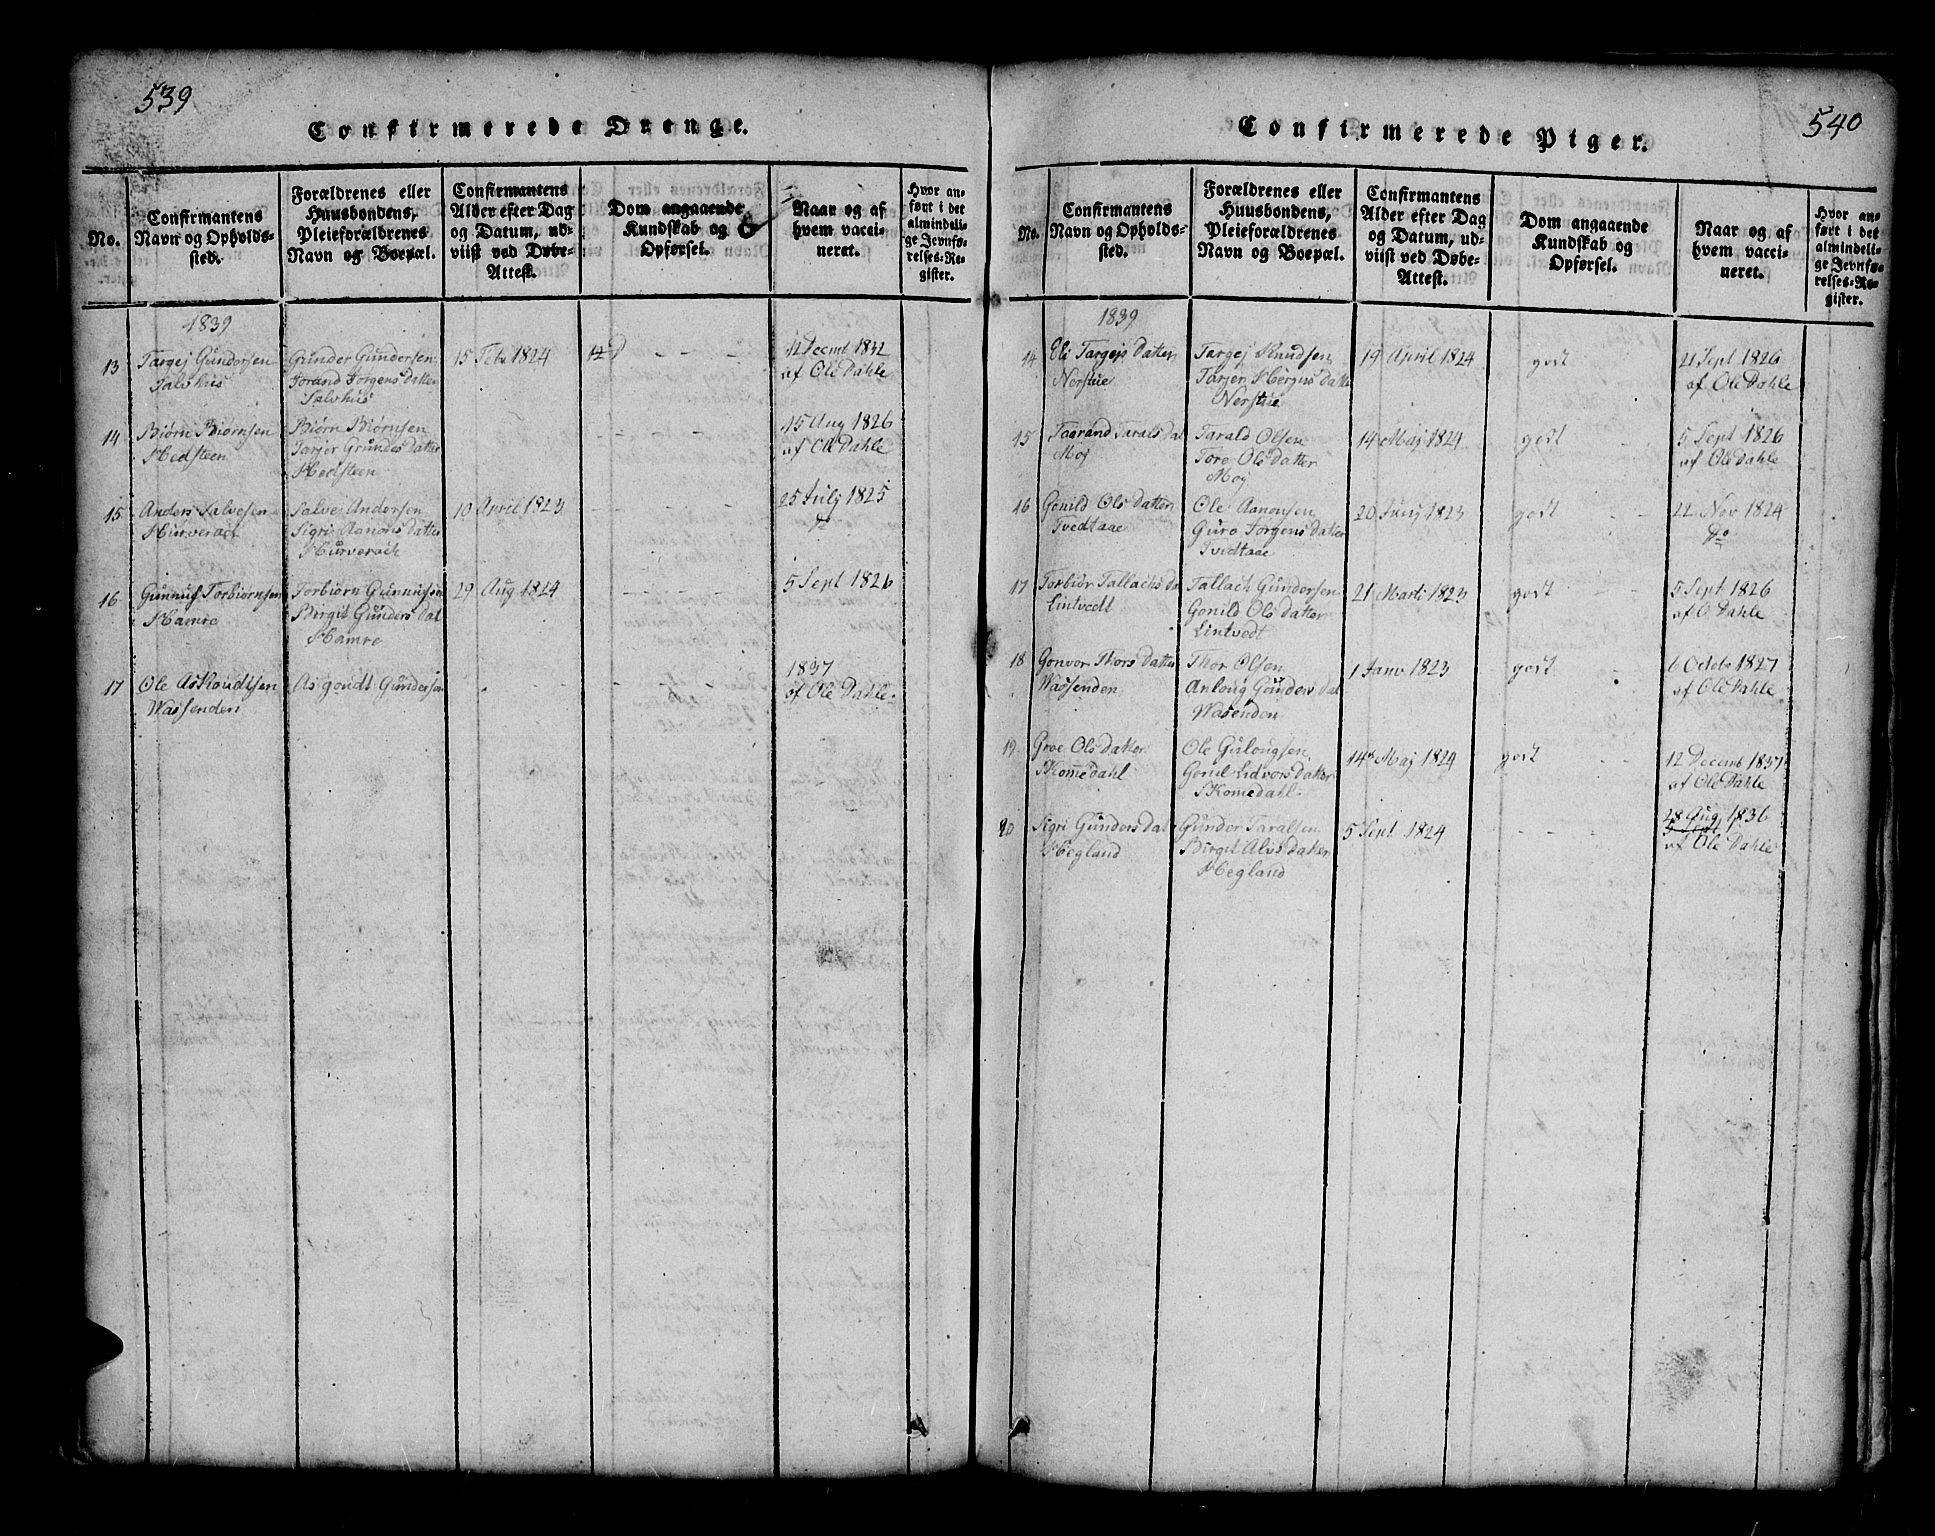 539
Confirmerede Drenge.
No.
Confirmantens
Navn og Opholds-
sted.
Forældrenes eller
Huusbondens,
Pleieforældrenes
Navn og Boepæl.
Confirmantens
Alder efter Dag
og Datum, ud-
viist ved Døbe-
Attest.
Dom angaaende
Kundskab og
Opførsel.
Naar og af
hvem vacci-
neret.
Hvor an-
ført i det
almindeli-
ge Jevnfø-
relses-Re-
gister.
1839
13
Targej Gundersen
Salvhus
Gunder Gundersen
Torand Jorgens datter
Salvhus
15 Feb 1824
af Ole Dahle
14
Biørn Biørnsen
Hedsteen
Biørn Biørnsen
Tarjer Grundes datter
Hedsteen
15 Aug 1826
af Ole Dahle
15
Anders Salvesen
Hurverach
Salvej Andersen
Sigri Aanons datter
Hurverach
10 April 1823
25 Julj 1825
16
Gunnuf Torbiørnsen
Hamre
Torbiørn Gunnufsen
Birgit Gunders dat
Hamre
29 Aug 1824
5 Sept 1826
17
Ole Askoudtsen
Wassenden
Asgoudt Gundersen
1837
af Ole Dahle
540
Confirmerede Piger.
No.
Confirmantens
Navn og Opholds-
sted.
Forældrenes eller
Huusbondens,
Pleieforældrenes
Navn og Boepæl.
Confirmantens
Alder efter Dag
og Datum, ud-
viist ved Døbe-
Attest.
Dom angaaende
Kundskab og
Opførsel.
Naar og af
hvem vacci-
neret.
Hvor an-
ført i det
almindeli-
ge Jevnfø-
relses-Re-
gister.
1839
14
Eli Targejs datter
Nerstue
Targej Knudsen
Tarjer Herjus datt
Nerstue
19 April 1824
godt
21 Sept 1826
af Ole Dahle
15
Taarand Tarals dat
Moj
Tarald Olsen
Tore Ols datter
Moj
14 Maj 1824
godt
5 Sept 1826
af Ole Dahle
16
Gonild Ols datter
Tvedtaae
Ole Aanonsen
Guro Jorgens datter
Tvedtaae
20 Junj 1823
godt
22 Nov 1824
Do
17
Torbiør Tallachs da
Lintvedt
Tallach Gundersen
Gonild Ols datter
Lintvedt
21 Marti 1823
godt
5 Sept 1826
af O Dahle
18
Gonvor Thors datter
Wassenden
Thor Olsen
Anlaug Gunders dat
Wasenden
1 Janv 1823
godt
6 Octobr 1827
af Ole Dahle
19
Groe Ols datter
Skomedahl
Ole Gulougsen
Gonil Lidvors datter
Skomedahl
14 Maj 1824
godt
12 Decemb 1837
af Ole Dahle
20
Sigri Gunders dat
Hegland
Gunder Taralsen
Birgit Alvs datter
Hegland
5 Sept 1824
28 Aug 1836
5 Sept
af Ole Dahle